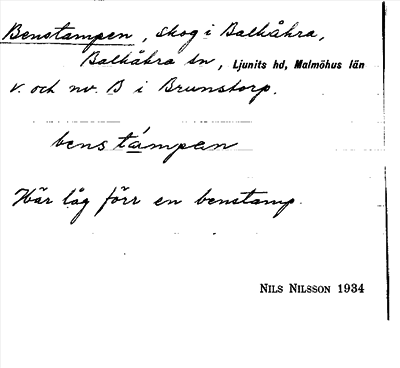 Benstampen, skog i Balkåkra,
Balkåkra sn, Ljunits hd, Malmöhus län
v. och nv. B i Brunstorp.
benstámpen
Här låg förr en benstamp.
NILS NILSSON 1934